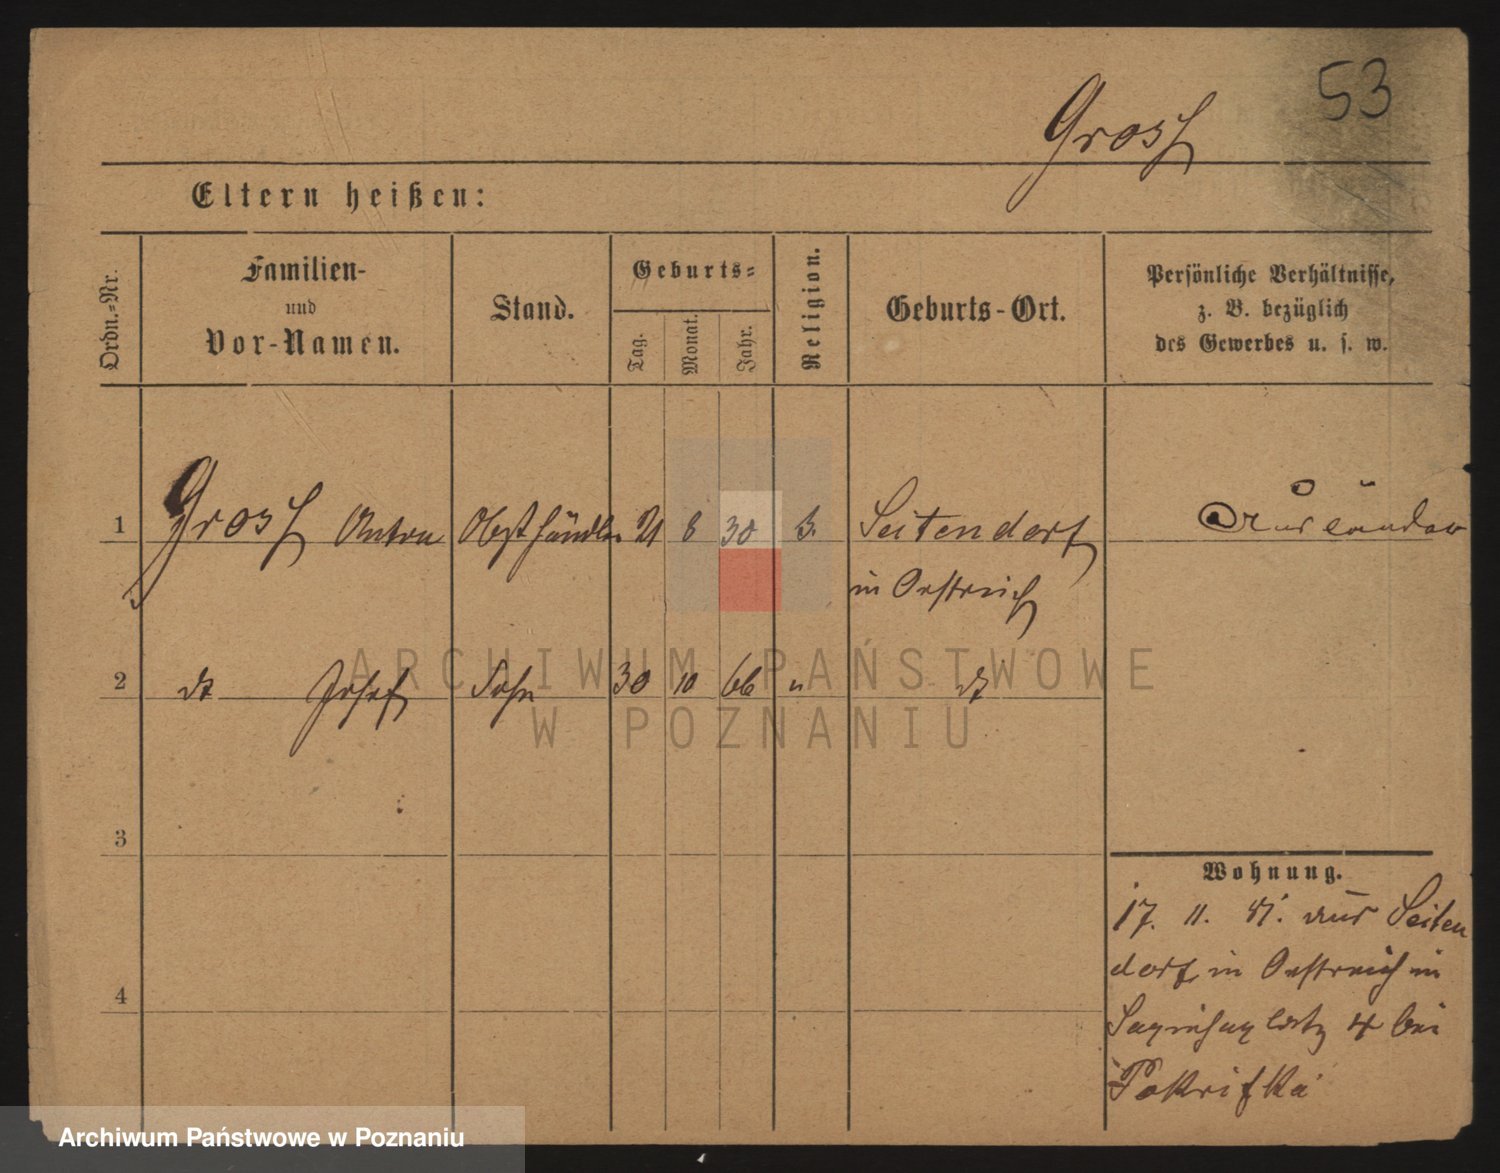 53
Grosz
Eltern heißen:
Ordn.-Nr.
Familien-
und
Vor-Namen.
Stand.
Geburts-
Tag.
Monat.
Jahr.
Religion.
Geburts-Ort.
Persönliche Verhältnisse,
z. B. bezüglich
des Gewerbes u. s. w.
1 Grosz Anton Obsthändler 21 8 30 Seitendorf Ausländer
in Oestreich
2 dt Josef Sohn 30 10 66 " dt
3
4
Wohnung.
17. 11. 81. aus Seiten
dorf in Oestreich in
Sapiehaplatz 4 bei
Pokrifka
ARCHIWUM PAŃSTWOWE
W POZNANIU
Archiwum Państwowe w Poznaniu